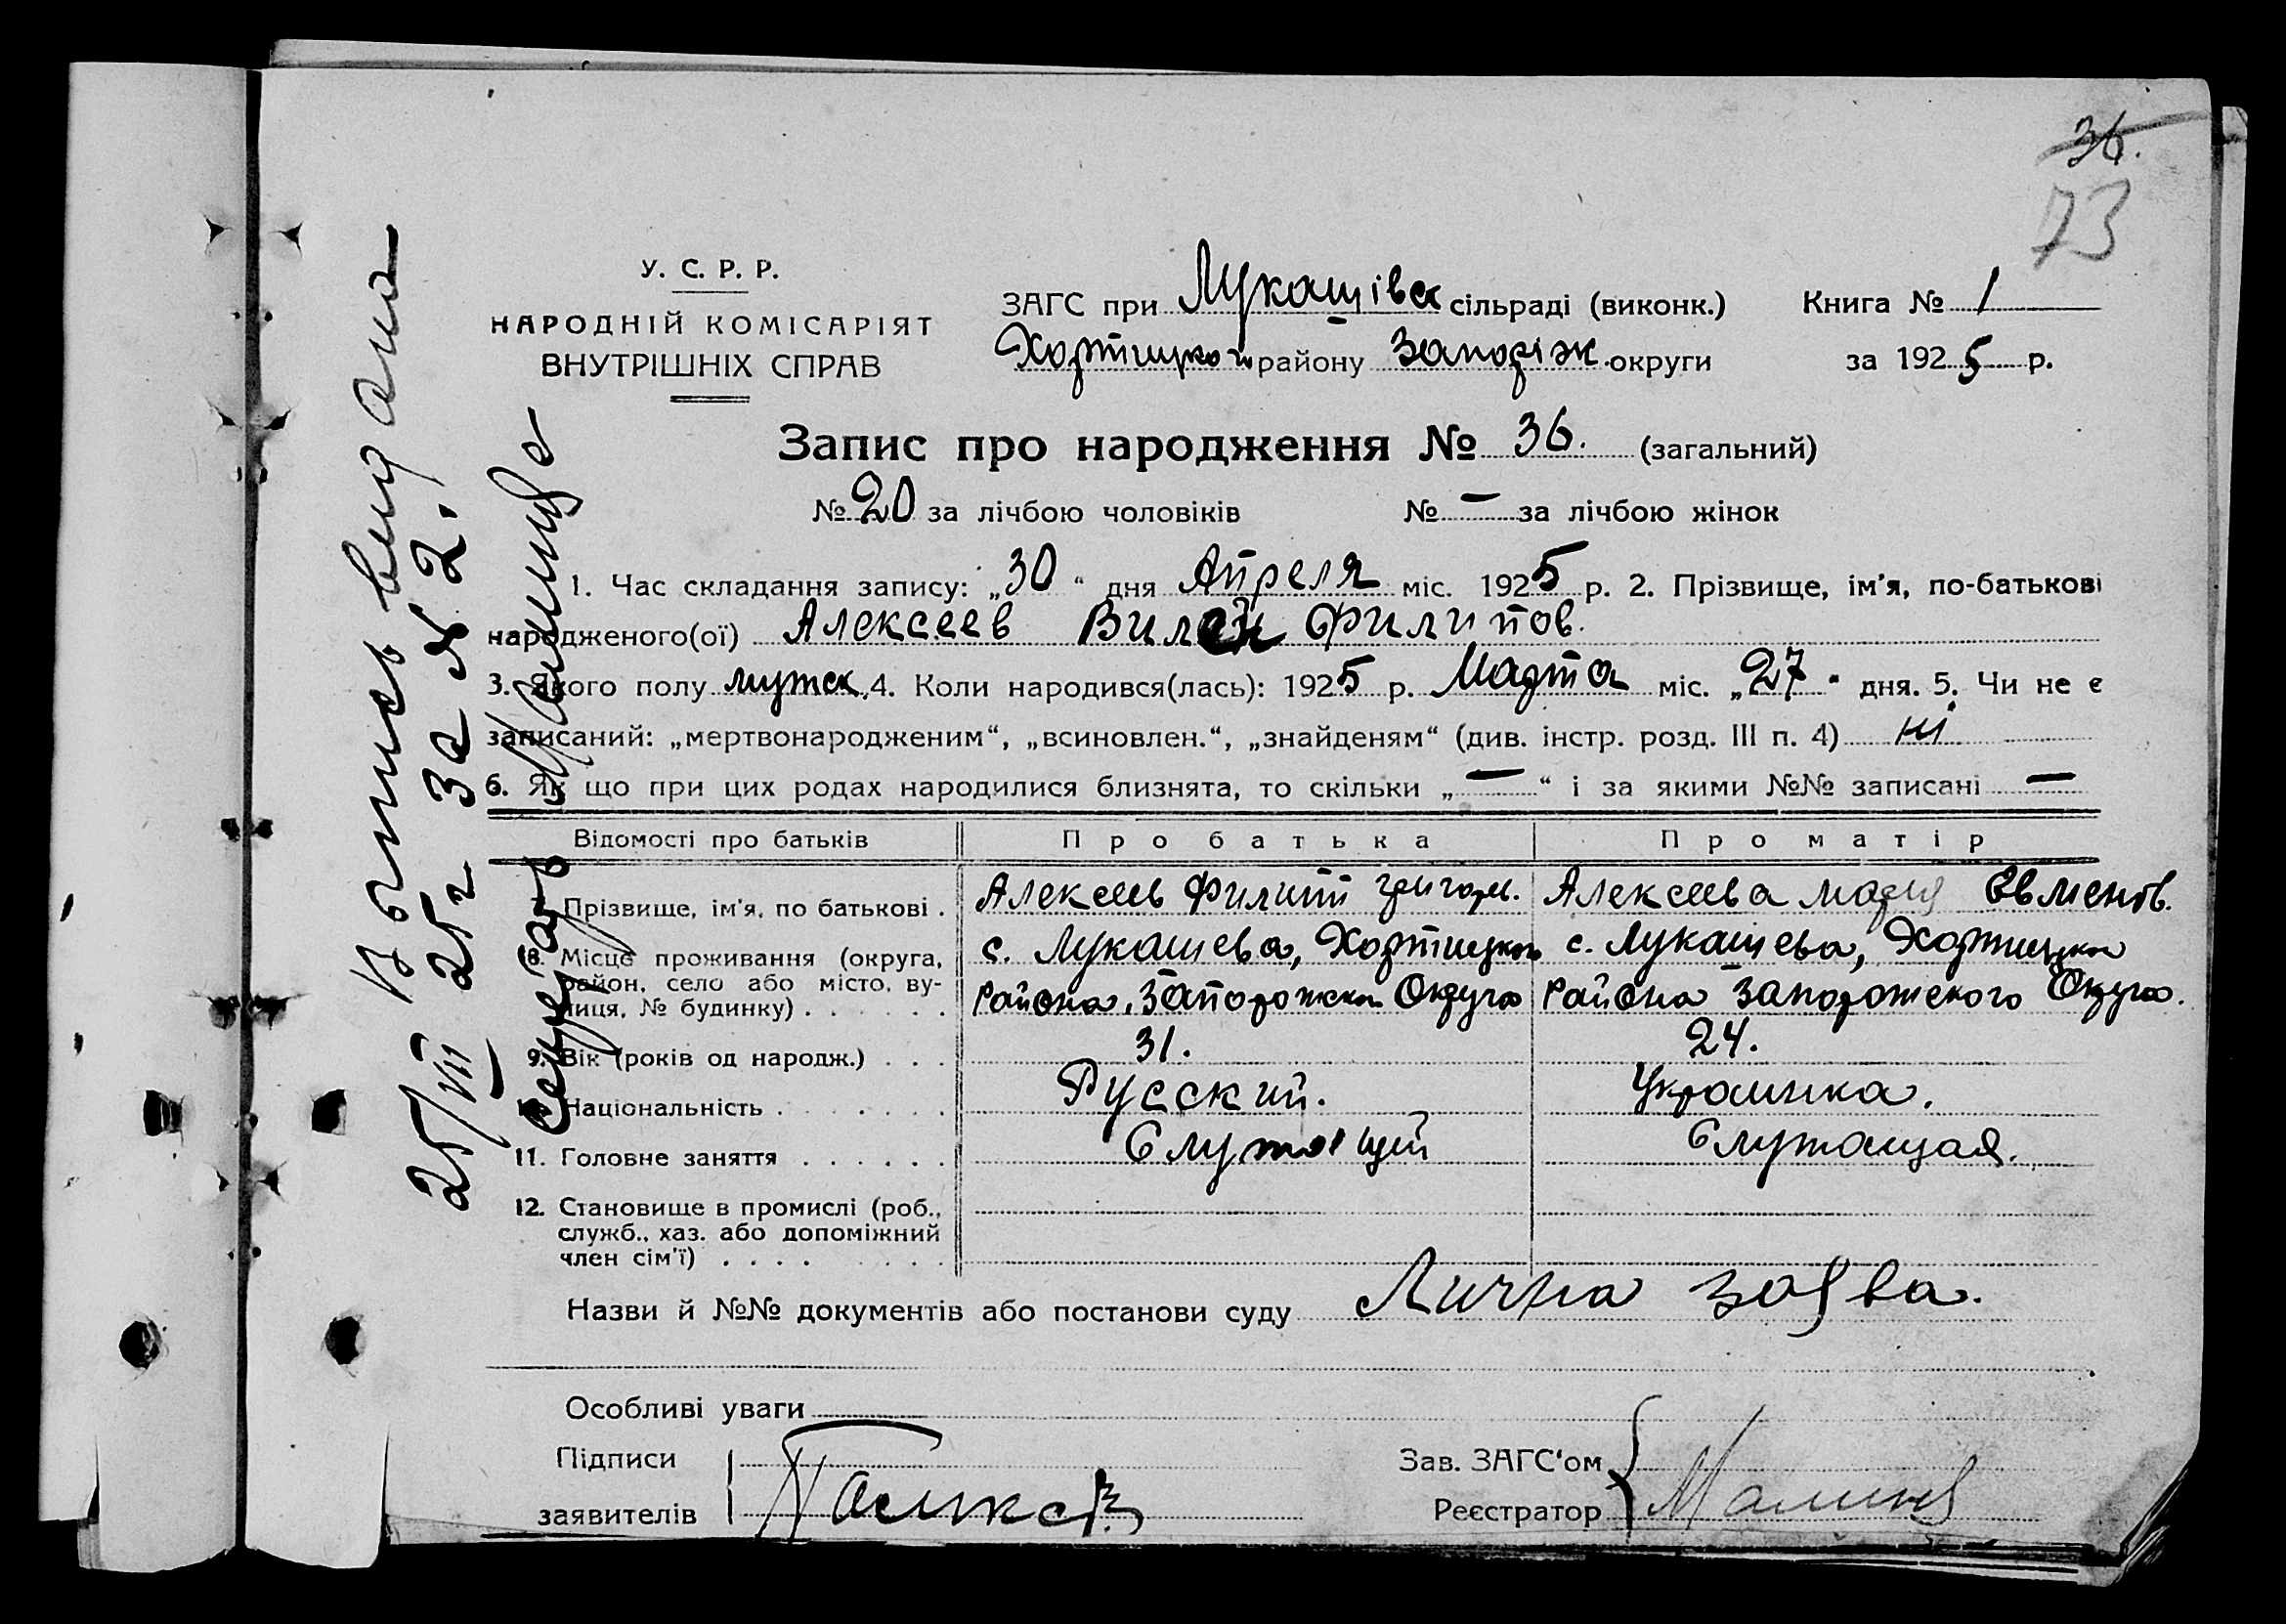 36.
73
У. С. Р. Р.
НАРОДНІЙ КОМІСАРІЯТ
ВНУТРІШНІХ СПРАВ
ЗАГС при Лукашівск сільраді (виконк.) Книга № 1
Хортицкого району Запоріж. округи за 1925 р.
Запис про народження № 36. (загальний)
№ 20 за лічбою чоловіків № — за лічбою жінок
1. Час складання запису: „30“ дня Апреля міс. 1925 р. 2. Прізвище, ім'я, по-батькові
народженого(ої) Алексеев Вилен Филипов.
3. Якого полу мужск. 4. Коли народився(лась): 1925 р. Марта міс. „27“ дня. 5. Чи не є
записаний: „мертвонародженим“, „всиновлен.“, „знайденям“ (див. інстр. розд. III п. 4) ні
6. Як що при цих родах народилися близнята, то скільки „—“ і за якими №№ записані —
Відомості про батьків Про батька Про матір
7. Прізвище, ім'я, по батькові . Алексеев Филипп Григорьев. Алексеева Мария Евменов.
8. Місце проживання (округа, район, село або місто, вулиця, № будинку) . . . . . .
с. Лукашева, Хортицкого района, Запорожского Округа
с. Лукашева, Хортицкого района Запорожского Округа.
9. Вік (років од народж.) . . . 31. 24.
10. Національність . . . . . . . Русский. Украинка.
11. Головне заняття . . . . . . Служащий Служащая.
12. Становище в промислі (роб.,
служб., хаз. або допоміжний
член сім'ї) . . . . . . . .
Назви й №№ документів або постанови суду Лична заява.
Особливі уваги
Підписи
заявителів
Зав. ЗАГС'ом
Реєстратор
Выпись выдана
25/VII 25 г за № 2.
Секретарь